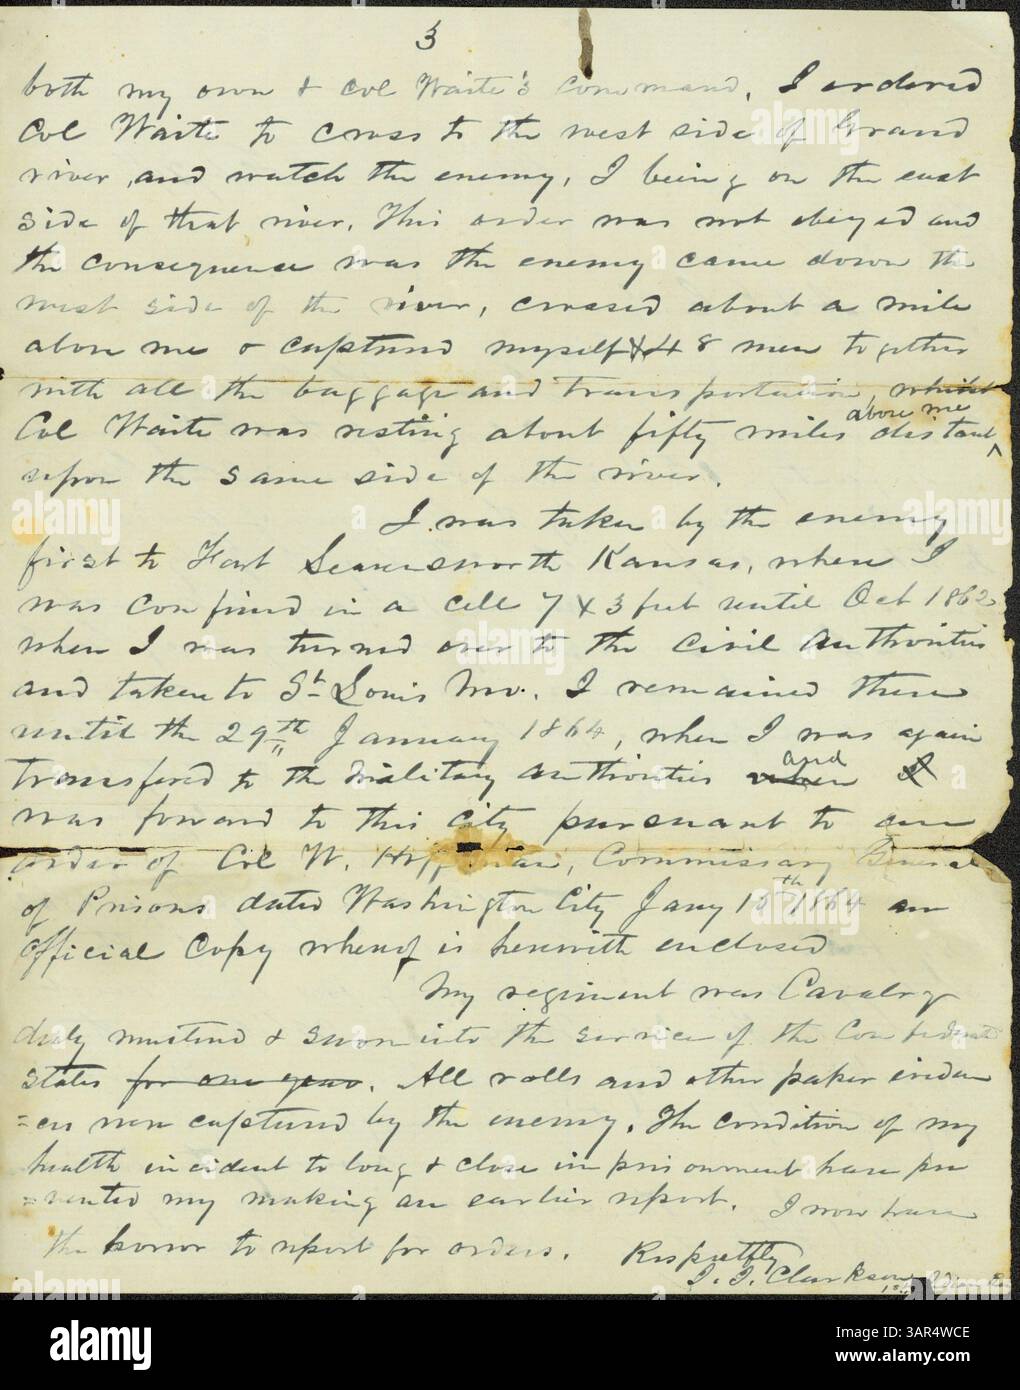 3
both my own & Col Waite's Command. I ordered
Col Waite to cross to the west side of Grand
river, and watch the enemy, I being on the east
side of that river. This order was not obeyed and
the consequence was the enemy came down the
west side of the river, crossed about a mile
above me & captured myself & 48 men together
with all the baggage and transportation, whilst
Col Waite was resting about fifty miles above me distant
upon the same side of the river.
I was taken by the enemy
first to Fort Leavensworth Kansas, where I
was confined in a cell 7 x 3 feet until Oct 1862
when I was turned over to the Civil Authorities
and taken to St Louis Mo. I remained there
until the 29th January 1864, when I was again
transfered to the Military authorities when and I
was forward to this city pursuant to an
order of Col W. Hoffman, Commissary General
of Prisons dated Washington City Jany 1864 an
official Copy wherof is herewith enclosed
My regiment was Cavalry
duly mustered & sworn into the service of the Confederate
States for one year. All rolls and other paper eviden
=ces were captured by the enemy. The condition of my
health incident to long & close imprisonment have pre
=vented my making an earlier report. I now have
the honor to report for orders. Respectfly
J. J. Clarkson
alamy
alamy
Image ID: 3AR4WCE
www.alamy.com